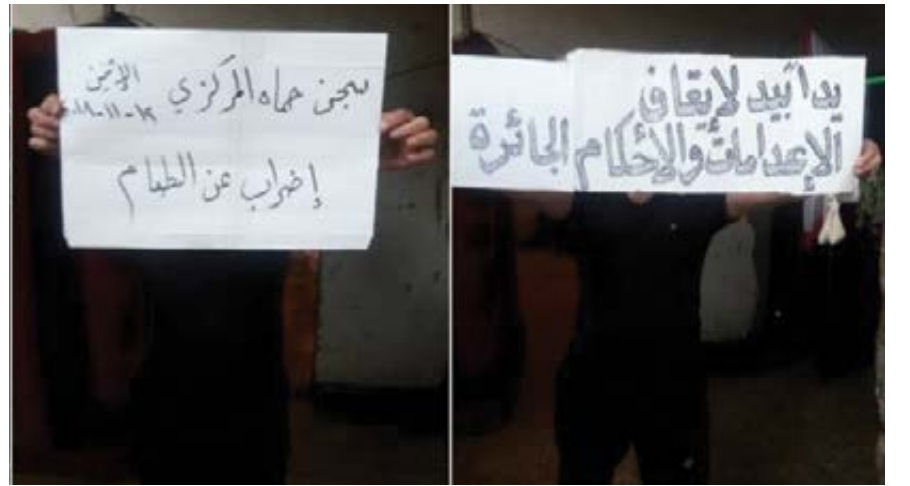 سجن حماه المركزي
الإثنين
١٢-١١-٢٠١٨
إضراب عن الطعام
يداً بيد لإيقاف
الإعدامات والأحكام الجائرة